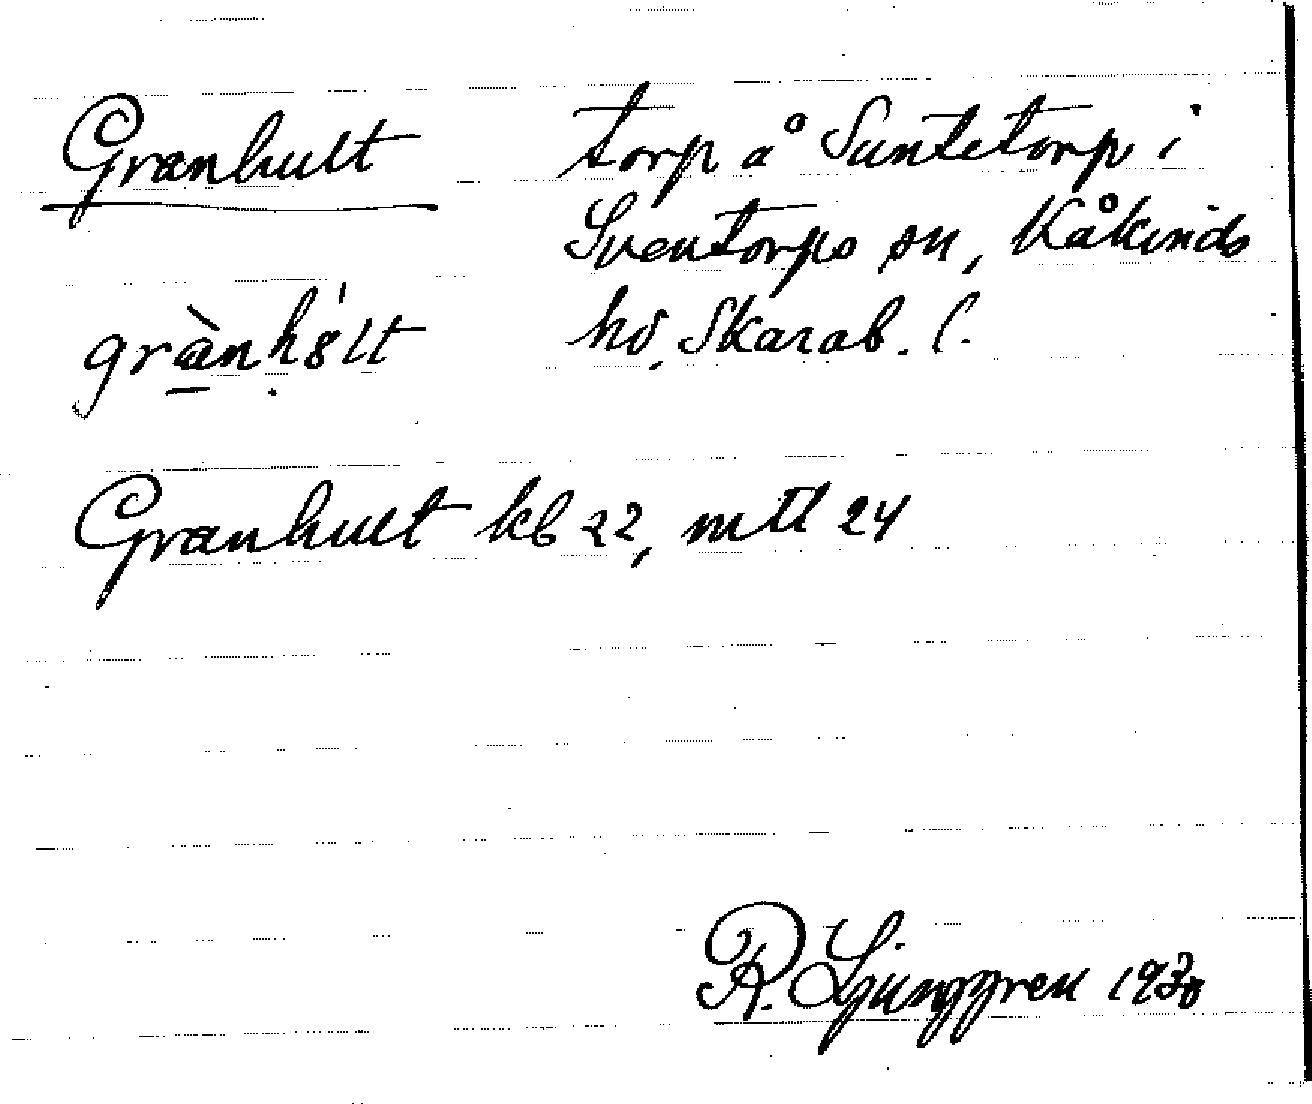 Granhult torp å Suntetorp i
Sventorps sn, Kåkinds
grànhı̣8lt hd, Skarab. l.
Granhult kb 22, mtl 24
R. Ljunggren 1930